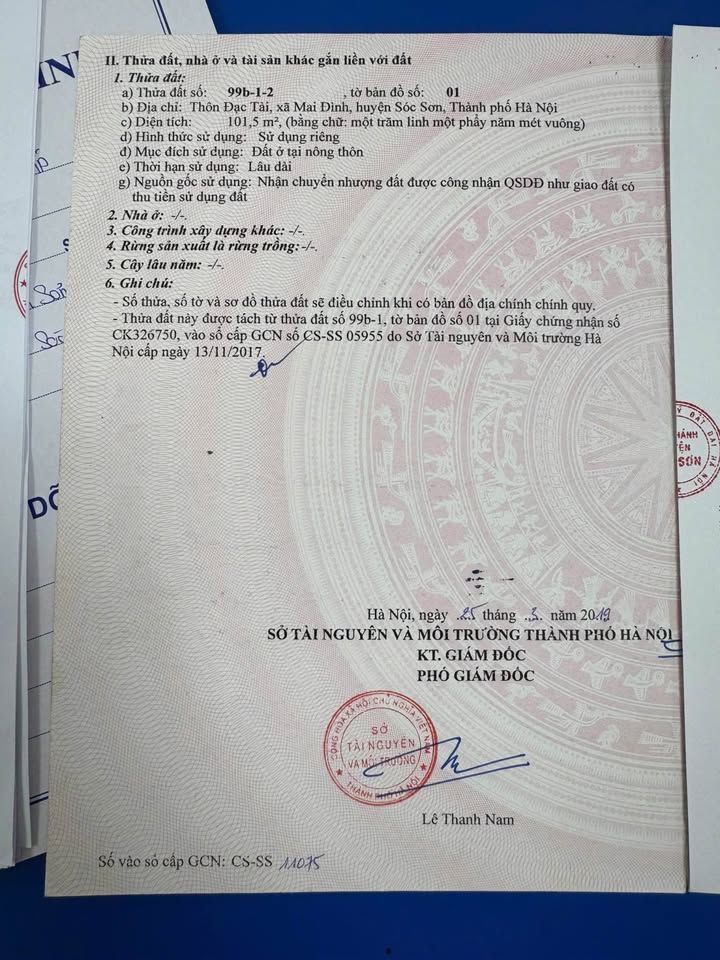 II. Thửa đất, nhà ở và tài sản khác gắn liền với đất
1. Thửa đất:
a) Thửa đất số: 99b-1-2 , tờ bản đồ số: 01
b) Địa chỉ: Thôn Đạc Tài, xã Mai Đình, huyện Sóc Sơn, Thành phố Hà Nội
c) Diện tích: 101,5 m², (bằng chữ: một trăm linh một phẩy năm mét vuông)
d) Hình thức sử dụng: Sử dụng riêng
đ) Mục đích sử dụng: Đất ở tại nông thôn
e) Thời hạn sử dụng: Lâu dài
g) Nguồn gốc sử dụng: Nhận chuyển nhượng đất được công nhận QSDĐ như giao đất có
thu tiền sử dụng đất
2. Nhà ở: -/-.
3. Công trình xây dựng khác: -/-.
4. Rừng sản xuất là rừng trồng:-/-.
5. Cây lâu năm: -/-.
6. Ghi chú:
- Số thửa, số tờ và sơ đồ thửa đất sẽ điều chỉnh khi có bản đồ địa chính chính quy.
- Thửa đất này được tách từ thửa đất số 99b-1, tờ bản đồ số 01 tại Giấy chứng nhận số
CK326750, vào sổ cấp GCN số CS-SS 05955 do Sở Tài nguyên và Môi trường Hà
Nội cấp ngày 13/11/2017.
Hà Nội, ngày 25 tháng 3 năm 2019
SỞ TÀI NGUYÊN VÀ MÔI TRƯỜNG THÀNH PHỐ HÀ NỘI
KT. GIÁM ĐỐC
PHÓ GIÁM ĐỐC
CỘNG HÒA XÃ HỘI CHỦ NGHĨA VIỆT NAM
SỞ
TÀI NGUYÊN
VÀ MÔI TRƯỜNG
THÀNH PHỐ HÀ NỘI
Lê Thanh Nam
Số vào sổ cấp GCN: CS-SS 11075